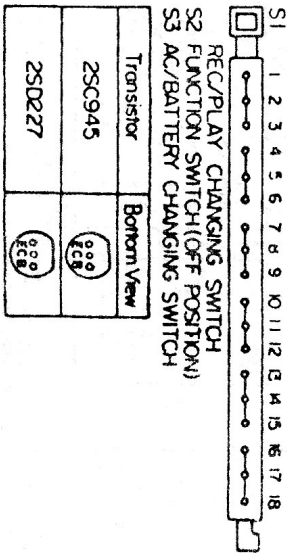 S1
1 2 3 4 5 6 7 8 9 10 11 12 13 14 15 16 17 18
REC/PLAY CHANGING SWITCH
S2 FUNCTION SWITCH (OFF POSITION)
S3 AC/BATTERY CHANGING SWITCH
Transistor Bottom View
2SC945 ECB
2SD227 ECB